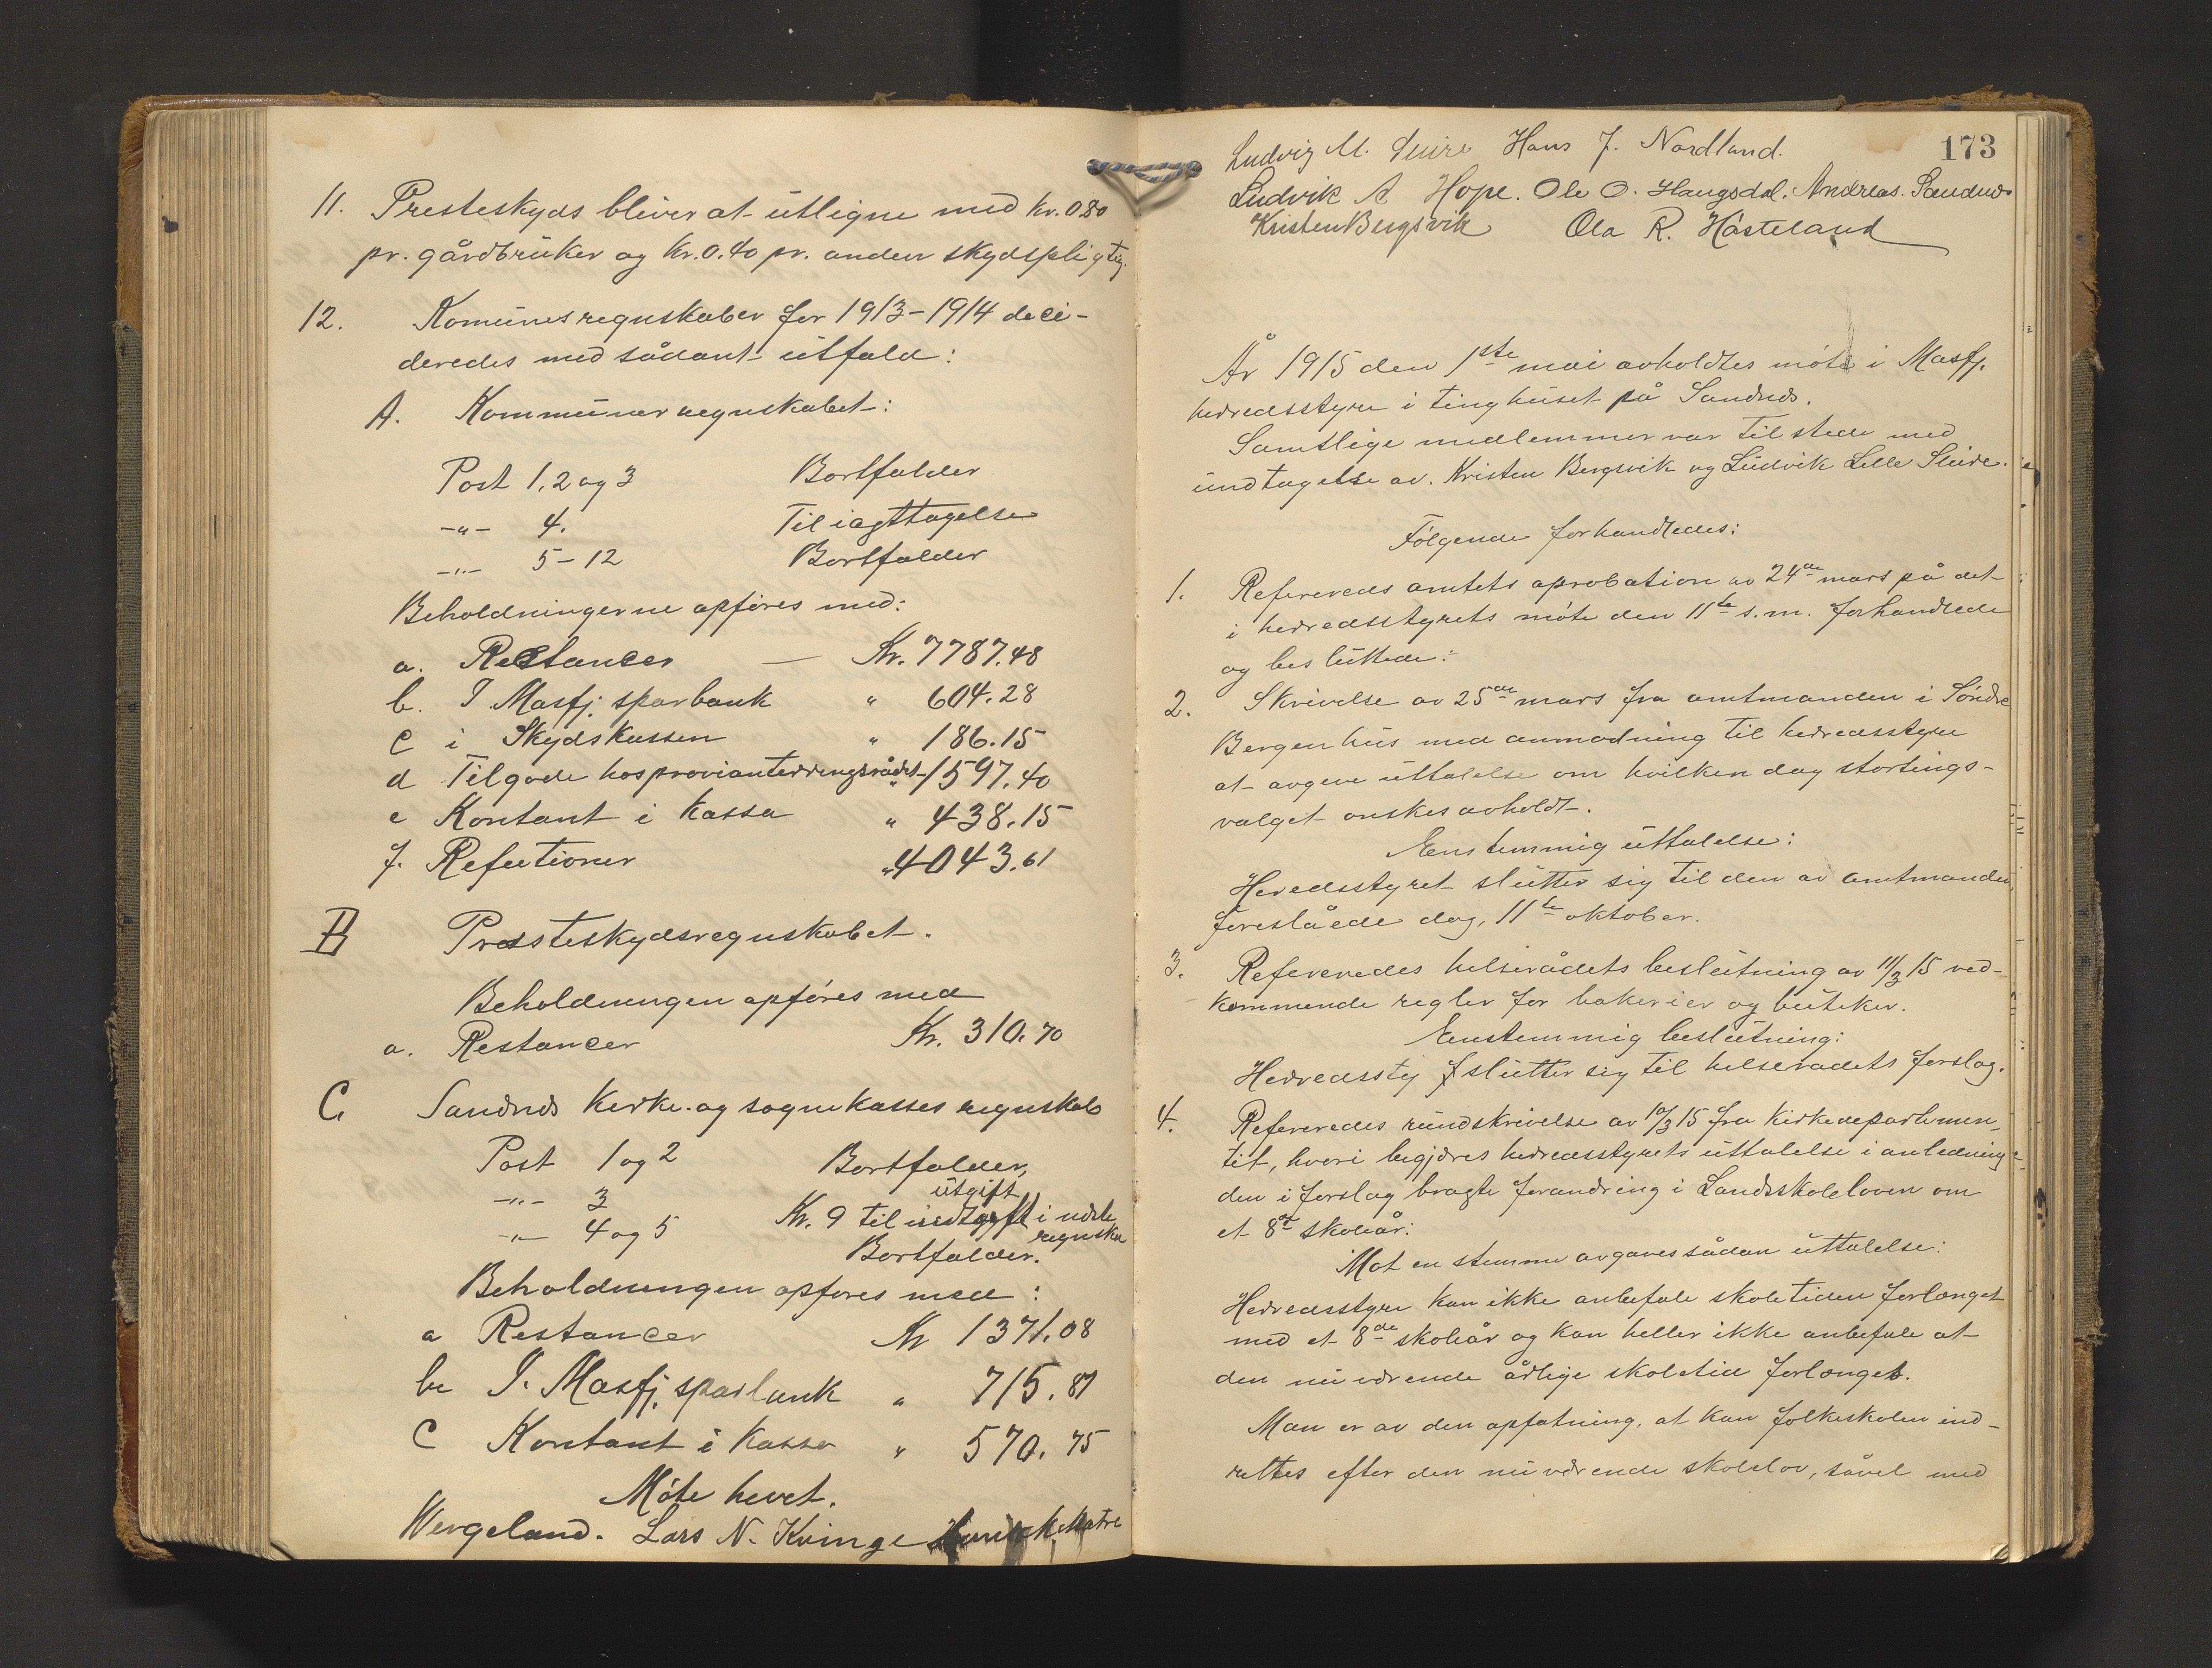 11. Presteskyds bliver at utligne med kr. 0.80
pr. gårdbruker og kr. 0.40 pr. anden skydspligtig.
12. Komunesregnskaber for 1913-1914 deci-
deredes med sådant utfald:
A. Kommuneregnskabet:
Post 1, 2 og 3 Bortfalder
-"- 4. Til iagttagelse
-"- 5-12 Bortfalder
Beholdningerne opføres med:
a. Restancer — Kr. 7787.48
b. I Masfj. sparbank " 604.28
c i Skydskassen " 186.15
d Tilgode hos provianteringsrådet " 1597.40
e Kontant i kassa " 438.15
f. Refutioner " 4043.61
B Presteskydsregnskabet.
Beholdningen opføres med
a. Restancer Kr. 310.70
C. Sandnds Kirke- og sognekasses regnskab
Post 1 og 2 Bortfalder,
utgift
-"- 3 Kr. 9 til i næste
regnska
-"- 4 og 5 Bortfalder.
Beholdningen opføres med:
a Restancer Kr 1371.08
b I. Masfj. sparbank " 715.81
c Kontant i kassa " 570.75
Møte hevet.
Wergeland. Lars N. Kvinge Matre
173
Ludvig M. Hans J. Nordland.
Ludvik A Hope. Ole O. Haugsdal. Andreas. Sandnds
Kristen Bergsvik Ola R. Håsteland
År 1915 den 1ste mai avholdtes møte i Masfj.
herredsstyre i tinghuset på Sandnds.
Samtlige medlemmer var tilstede med
undtagelse av. Kristen Bergsvik og Ludvik Lille
Følgende forhandledes:
1. Refereredes amtets aprobation av 24de mars på det
i herredsstyrets møte den 11te s.m. forhandlede
og besluttede:
2. Skrivelse av 25de mars fra amtmanden i Søndre
Bergenhus med anmodning til herredsstyre
at avgive uttalelse om hvilken dag stortings-
valget ønskes avholdt.
Enstemmig uttalelse:
Heredsstyret slutter sig til den av amtmanden
foreslåede dag, 11te oktober.
3. Refereredes helserådets beslutning av 11/3 15 ved-
kommende regler for bakerier og butiker.
Enstemmig beslutning:
Herredssty slutter sig til helserådets forslag.
4. Refereredes rundskrivelse av 10/3 15 fra kirkedepartemen-
tet, hvori begjæres herredsstyrets uttalelse i anledning
den i forslag bragte forandring i Landsskoleloven om
et 8de skoleår:
Mot en stemme avgaves sådan uttalelse:
Herredsstyre kan ikke anbefale skoletiden forlænget
med et 8de skoleår og kan heller ikke anbefale at
den nuværende årlige skoletid forlænges.
Man er av den opfatning, at kan folkeskolen ind-
rettes efter den nuværende skolelov, såvel med